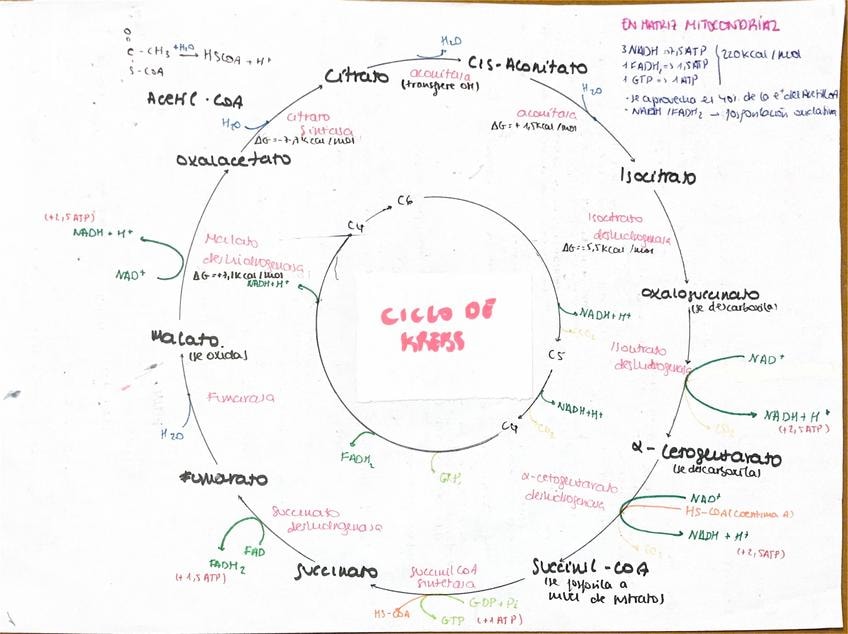 EN MATRIZ MITOCONDRIAL
3 NADH => 7,5 ATP
1 FADH2 => 1,5 ATP
1 GTP => 1 ATP
220 Kcal/mol
- se aprovecha el 40% de la e+ del Acetil CoA
- NADH/FADH2 → fosforilación oxidativa
O
C - CH3 +H2O → HSCOA + H+
S - COA
Acetil - COA
H2O
Citrato
H2O
aconitasa
(transfiere OH)
Cis-Aconitato
H2O
aconitasa
ΔG = +1,5 Kcal/mol
citrato
sintasa
ΔG = -7,7 Kcal/mol
Oxalacetato
Isocitrato
Isocitrato
deshidrogenasa
ΔG = -5,5 Kcal/mol
(+2,5 ATP)
NADH + H+
NAD+
Malato
deshidrogenasa
ΔG = +7,1 Kcal/mol
C6
C4
NADH + H+
CICLO DE
KREBS
NADH + H+
CO2
C5
NADH + H+
CO2
C4
GTP
FADH2
Oxalosuccinato
(se descarboxila)
Isocitrato
deshidrogenasa
NAD+
NADH + H+
(+2,5 ATP)
CO2
Malato
(se oxida)
Fumarasa
H2O
α - cetoglutarato
(se descarboxila)
α-cetoglutarato
deshidrogenasa
NAD+
HS-COA (coenzima A)
NADH + H+
(+2,5 ATP)
CO2
Fumarato
Succinato
deshidrogenasa
FAD
FADH2
(+1,5 ATP)
Succinato
Succinil COA
sintetasa
HS-COA
GDP + Pi
GTP (+1 ATP)
Succinil - COA
(se fosforila a
nivel de sustrato)